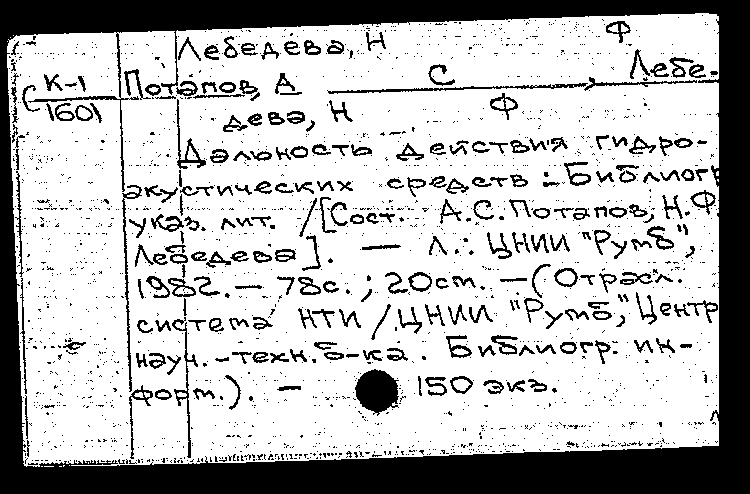 Лебедева, Н Ф
К-1 Потапов, А С Лебе-
1601 дева, Н Ф
Дальность действия гидро-
акустических средств : Библиогр
указ. лит. / [Сост. А.С. Потапов, Н.Ф.
Лебедева]. — Л. : ЦНИИ "Румб",
1982. — 78с. ; 20см. — (Отрасл.
система НТИ / ЦНИИ "Румб", Центр
науч.-техн. б-ка. Библиогр. ин-
форм.). — 150 экз.